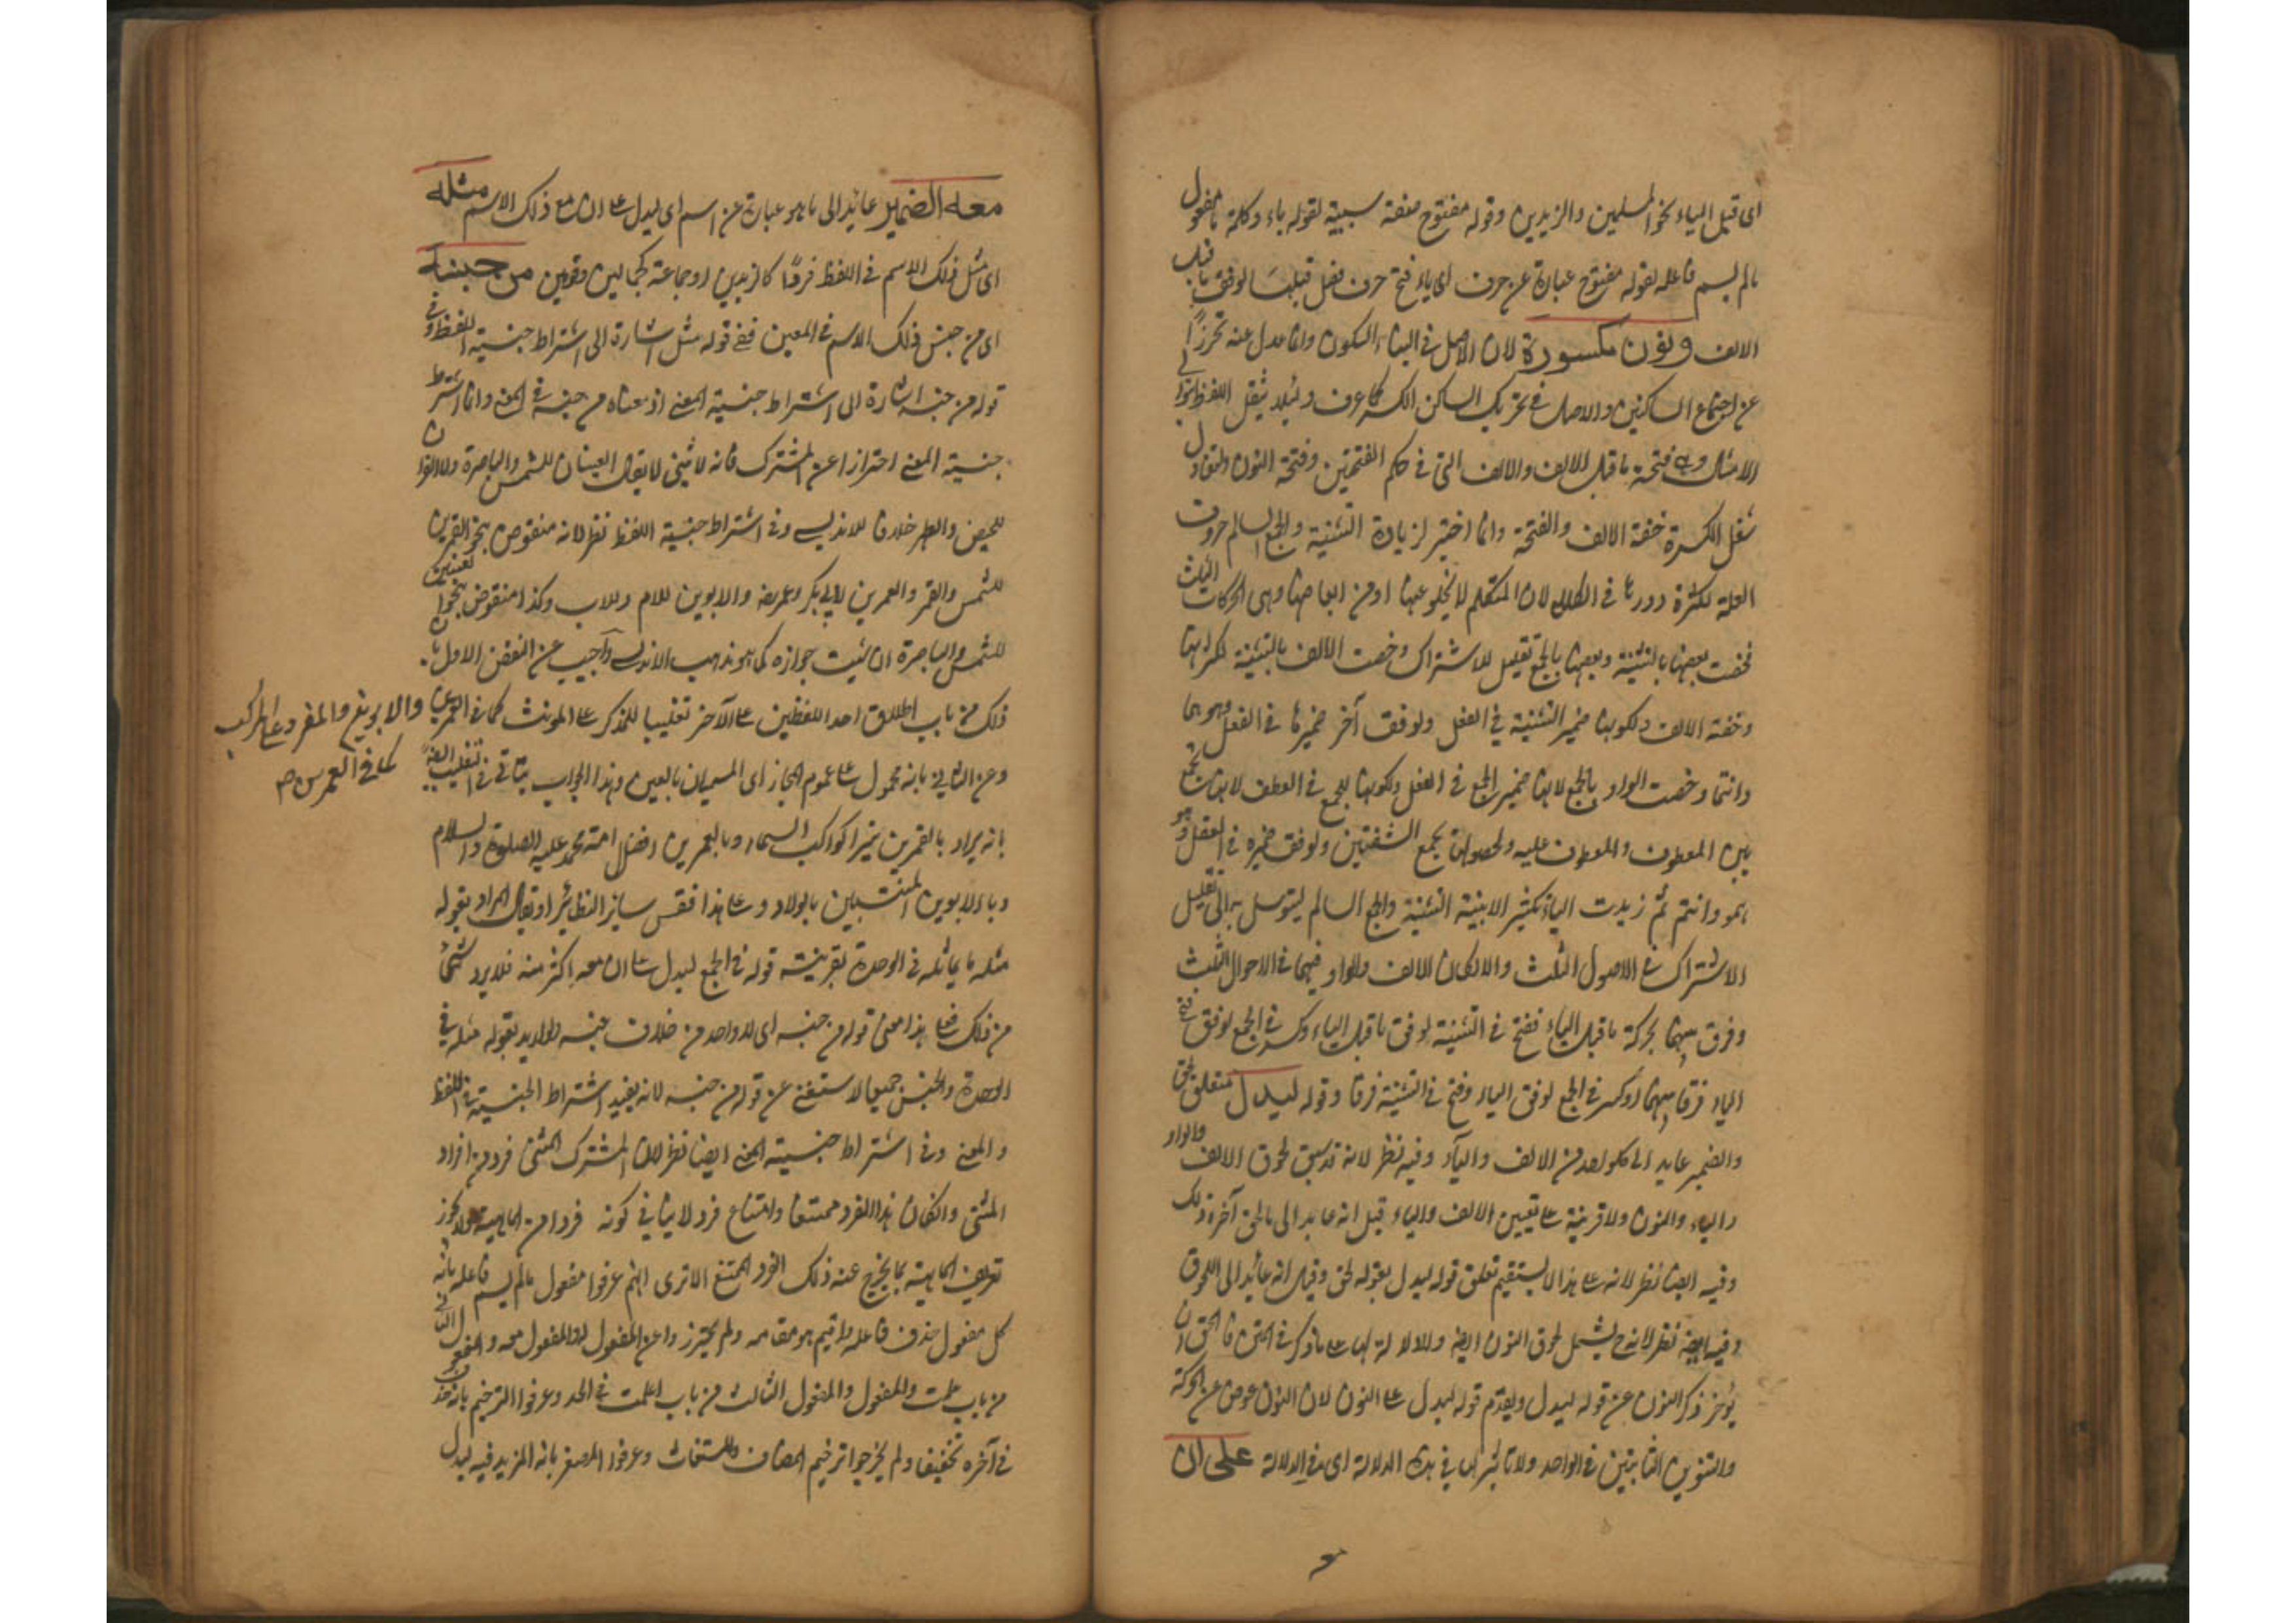 اى قبل الياء نحو المسلمين والزيدين وقوله مفتوح صفة سببية لقوله ياء وكلمة ما مفعول
مالم يسم فاعله لقوله مفتوح عبارة عن حرف اى ياء فتح حرف قبلها لوفق ما قبل
الالف ونون مكسورة لان الاصل فى البناء السكون وانما عدل عنه تحرزًا
عن اجتماع الساكنين والاصل فى تحريك الساكن الكسر كما عرف ولئلا يثقل اللفظ بتوالى
الامثال وهى فتحة ما قبل الالف والالف التى فى حكم الفتحتين وفتحة النون وليعادل
ثقل الكسرة خفة الالف والفتحة وانما اختير لزيادة التثنية والجمع السالم حروف
العلة لكثرة دورها فى الكلام لان المتكلم لا يخلو عنها او من ابعاضها وهى الحركات الثلث
فخصت بعضها بالتثنية وبعضها بالجمع تقليل للاشتراك وخصت الالف بالتثنية لكثرتها
وخفة الالف ولكونها ضمير التثنية فى الفعل ولوفق آخر ضميرها فى الفعل وهو هما
وانتما وخصت الواو بالجمع لانها ضمير الجمع فى الفعل ولكونها للجمع فى العطف لانها تجمع
بين المعطوف والمعطوف عليه ولحصولها بجمع الشفتين ولوفق ضميره فى الفعل وهو
همو وانتم ثم زيدت الياء لتكثير الابنية التثنية والجمع السالم ليتوسل بها الى تقليل
الاشتراك فى الاصول الثلث والا لكان الالف والواو فيهما فى الاحوال الثلث
وفرق بينهما بحركة ما قبل الياء ففتح فى التثنية لوفق ما قبل الياء وكسر فى الجمع لوفق
الياء فرقا بينهما او كسر فى الجمع لوفق الياء وفتح فى التثنية فرقا وقوله ليدل متعلق بلحق
والضمير عايد الى كل واحد من الالف والياء وفيه نظر لانه قد سبق لحوق الالف والواو
والياء والنون ولا قرينة على تعيين الالف والياء قيل انه عايد الى مالحق آخره ذلك
وفيه ايضا نظر لانه على هذا لا يستقيم تعلق قوله ليدل بقوله لحق وقيل انه عائد الى اللحوق
وفيه ايضا نظر لانه ح يشمل لحوق النون ايضا ولا دلالة لها على ما ذكر فى المتن فالحق ان
يؤخر ذكر النون عن قوله ليدل ويقدم قوله ليدل على النون لان النون عوض عن الحركة
والتنوين الثابتين فى الواحد ولا تاثير لها فى هذه الدلالة اى فى الدلالة على ان
معه الضمير عائد الى ما هو عبارة عن اسم اى ليدل على ان مع ذلك الاسم مثله
اى مثل ذلك الاسم فى اللفظ فردًا كالزيدين او جماعة كجمالين وقومين من جنسه
اى من جنس ذلك الاسم فى المعين ففى قوله مثل اشارة الى اشتراط جنسية اللفظ وفى
قوله من جنسه اشارة الى اشتراط جنسية المعنى اذ معناه من جنسه فى المعنى وانما اشترط
جنسية المعنى احترازا عن المشترك فانه لا يثنى لا يقال العينان للشمس والباصرة ولا القرآن
للحيض والطهر خلافا للاندلسى وفى اشتراط جنسية اللفظ نظر لانه منقوض بنحو القمرين
للشمس والقمر والعمرين لابى بكر وعمر رضه والابوين للام وللاب وكذا منقوض بنحو العينين
للشمس والباصرة ان ثبت جوازه كما هو مذهب الاندلسى واجيب عن النقض الاول بان
ذلك من باب اطلاق احد اللفظين على الآخر تغليبا للمذكر على المونث كما فى القمرين
والابوين والمفرد على المركب
كما فى العمرين صح
وعن الثانى بانه محمول على عموم المجاز اى المسميان بالعين وهذا الجواب يتاتى فى التغليب ايضا
بانه يراد بالقمرين نيرا كواكب السماء وبالعمرين افضل امة محمد عليه الصلوة والسلام
وبالابوين المنتسبين بالولاد وعلى هذا فقس ساير النظائر او يقال المراد بقوله
مثله ما يماثله فى الوحدة بقرينة قوله فى الجمع ليدل على ان معه اكثر منه فلا يرد شئ
من ذلك فعلى هذا معنى قوله من جنسه اى لا واحد من خلاف جنسه ولو اريد بقوله مثله فى
الوحدة والجنس جميعا لاستغنى عن قوله من جنسه لانه يفيد اشتراط الجنسية فى اللفظ
والمعنى وفى اشتراط جنسية المعنى ايضا نظر لان المشترك المثنى فرد من افراد
المثنى وان كان هذا الفرد ممتنعا وامتناع فرد لا ينافى كونه فردا من الماهية ولا يجوز
تعريف الماهية بما يخرج عنه ذلك الفرد الممتنع الا ترى انهم عرفوا مفعول مالم يسم فاعله بانه
كل مفعول حذف فاعله واقيم هو مقامه ولم يحترزوا عن المفعول له والمفعول معه والمفعول الثانى
من باب علمت والمفعول والمفعول الثالث من باب اعلمت فى الحد وعرفوا الترخيم بانه حذف
فى آخره تخفيفا ولم يخرجوا ترخيم المضاف والمستغاث وعرفوا المصغر بانه المزيد فيه ليدل